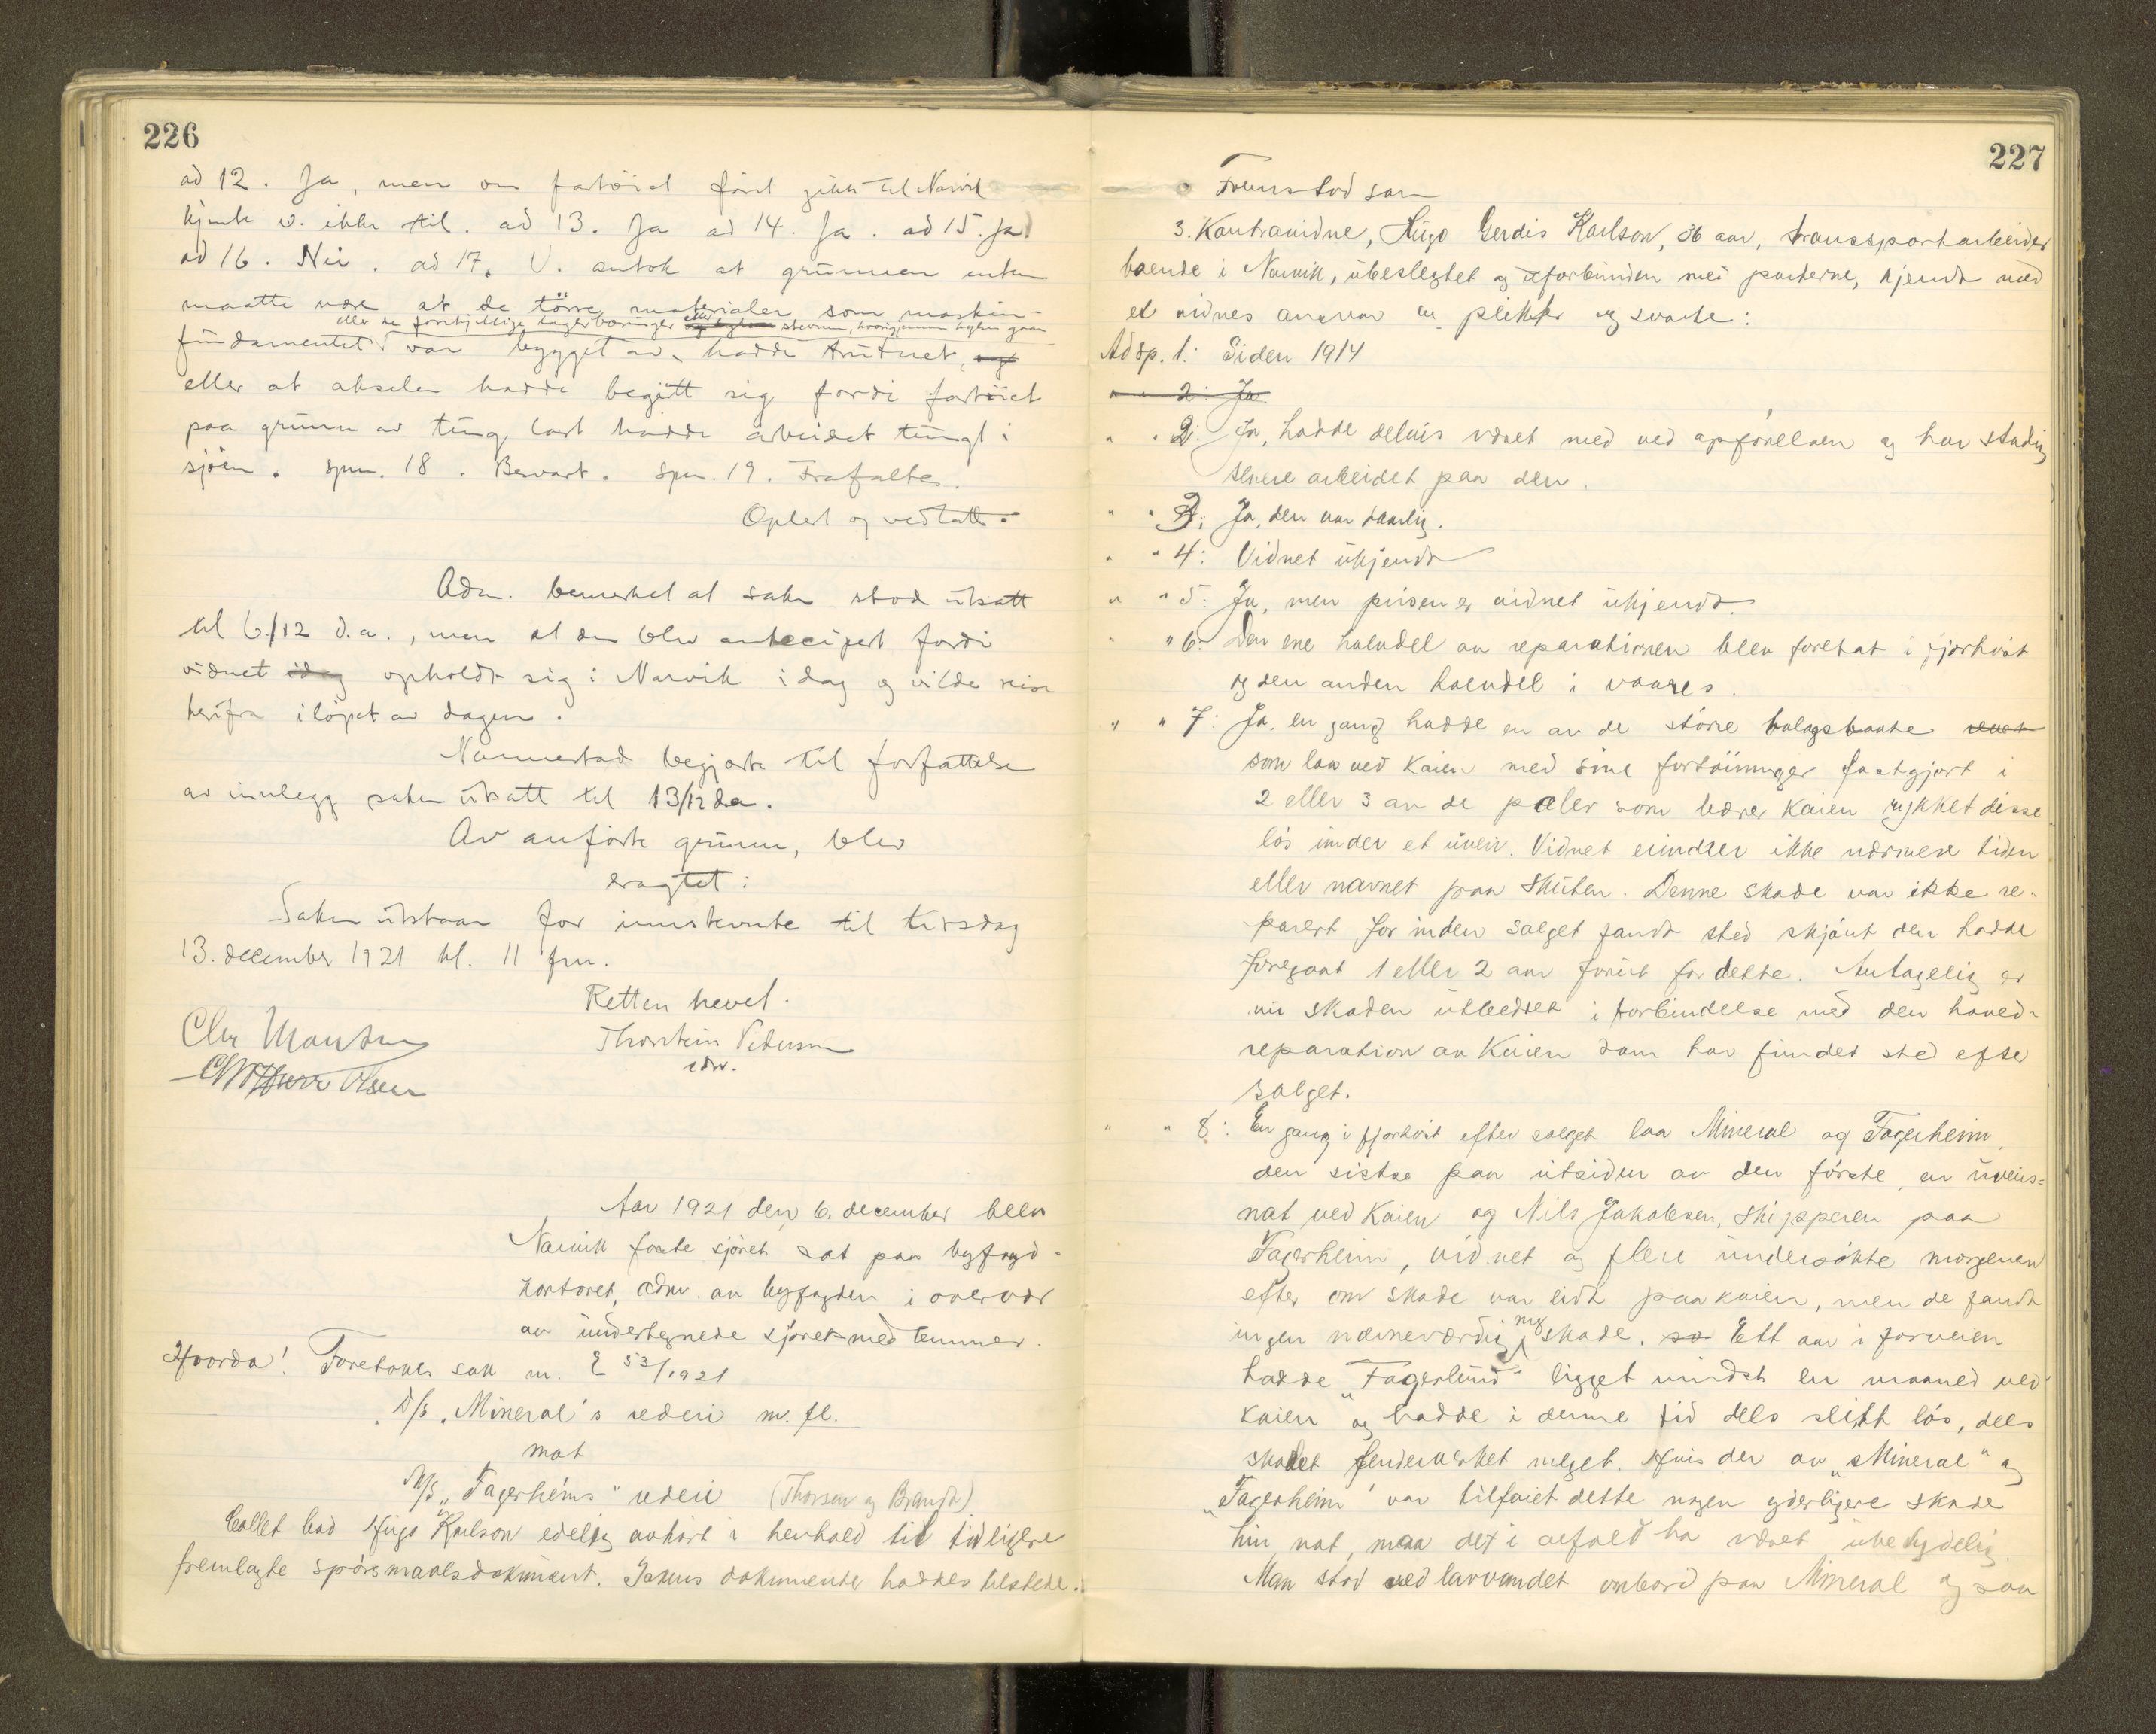 226
ad 12. Ja, men om fartöiet först gikk til Narvik
kjente v. ikke til. ad 13. Ja ad 14. Ja. ad 15. Ja.
ad 16. Nei. ad 17. V. antok at grunnen enten
maatte være at de törre materialer som maskin-
eller de forskjellige lagerböininger eller stevnen, hvorigjennem hylsen gaar
fundamentet var bygget av, hadde trutnet, og
eller at akselen hadde begitt sig fordi fartöiet
paa grunn av tung last hadde arbeidet tungt i
sjöen. spm. 18. Besvart. spm. 19. Frafaltes.
Oplest og vedtatt.
Adm. bemerket at saken stod utsatt
til 6/12 d.a., men at den blev antecipert fordi
vidnet idag opholdt sig i Narvik idag og vilde reise
herifra i löpet av dagen.
Nannestad begjærte til forfattelse
av innlegg saken utsatt til 13/12 d.a.
Av anförte grunn, blev
eragtet:
Saken utstaar for innstevnte til tirsdag
13. december 1921 kl. 11 fm.
Retten hevet.
Chr Monsen Thorstein Pedersen
adm.
Olsen
Aar 1921 den 6. december blev
Narvik faste sjöret sat paa byfogd-
kontoret, adm. av byfogden i overvær
av undertegnede sjöretmedlemmer.
Hvorda! Foretokes sak nr. E 53/1921
D/S "Mineral"s rederi m. fl.
mot
M/S "Fagerheims" rederi (Thorsen og Brandt)
Collet bad Hugo Karlson edelig avhört i henhold til tidligere
fremlagte spörsmaalsdokument. Sakens dokumenter haddes tilstede.
227
Fremstod som
3. Kontravidne, Hugo Gerdis Karlson, 36 aar, transportarbeider
boende i Narvik, ubeslegtet og uforbunden med parterne, kjendt med
et vidnes ansvar og plikter og svarte:
Ad sp. 1: Siden 1914
" " 2: Ja.
" " 2: Ja, hadde delvis været med ved opförelsen og har stadig
senere arbeidet paa den.
" " 3: Ja, den var daarlig.
" " 4: Vidnet ukjendt
" " 5: Ja, men prisen er vidnet ukjendt.
" " 6: Den ene halvdel av reparationen blev foretat i fjorhöst
og den anden halvdel i vaares.
" " 7: Ja. en gang hadde en av de större bolagsbaate været
som laa ved kaien med sine fortöininger fastgjort i
2 eller 3 av de pæler som bærer kaien rykket disse
lös under et uveir. Vidnet erindrer ikke nærmere tiden
eller navnet paa skuten. Denne skade var ikke re-
parert för inden salget fandt sted skjönt den hadde
foregaat 1 eller 2 aar forut for dette. Antagelig er
nu skaden utbedret i forbindelse med den hoved-
reparation av kaien som har fundet sted efter
salget.
" " 8: En gang i fjorhöst efter salget laa Mineral og Fagerheim,
den sidste paa utsiden av den förste, en uveirs-
nat ved kaien og Nils Jakobsen, skipperen paa
Fagerheim, vidnet og flere undersökte morgenen
efter om skade var lidt paa kaien, men de fandt
ingen nævneværdig ny skade. Ett aar i forveien
hadde "Fagerlund" ligget mindst en maaned ved
kaien og hadde i denne tid dels slitt lös, dels
skadet fenderverket meget. Hvis der av "Mineral" og
"Fagerheim" var tilföiet dette nogen yderligere skade
hin nat, maa det i alfald ha været ubetydelig.
Man stod ved larvandet ombord paa Mineral og saa